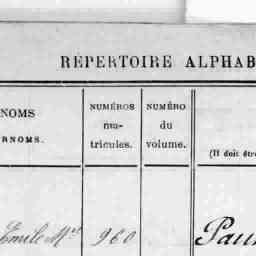 RÉPERTOIRE ALPHAB
NOMS
RNOMS.
NUMÉROS
ma-
tricules.
NUMÉRO
du
volume.
(Il doit êtr
Emile Mel 960
Pau